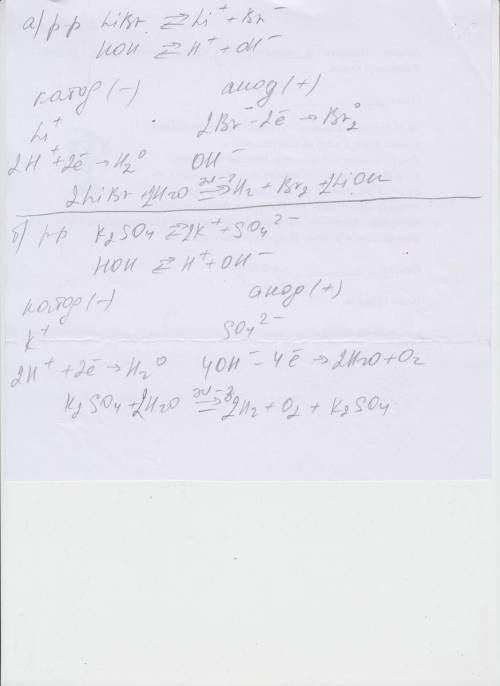 а) р-р LiBr ⇄ Li⁺ + Br⁻
HOH ⇄ H⁺ + OH⁻
катод (−) анод (+)
Li⁺ 2Br⁻ − 2ē → Br₂⁰
2H⁺ + 2ē → H₂⁰ OH⁻
2LiBr + 2H₂O эл-з ⇒ H₂ + Br₂ + 2LiOH
б) р-р K₂SO₄ ⇄ 2K⁺ + SO₄²⁻
HOH ⇄ H⁺ + OH⁻
катод (−) анод (+)
K⁺ SO₄²⁻
2H⁺ + 2ē → H₂⁰ 4OH⁻ − 4ē → 2H₂O + O₂
K₂SO₄ + 2H₂O эл-з ⇒ 2H₂ + O₂ + K₂SO₄